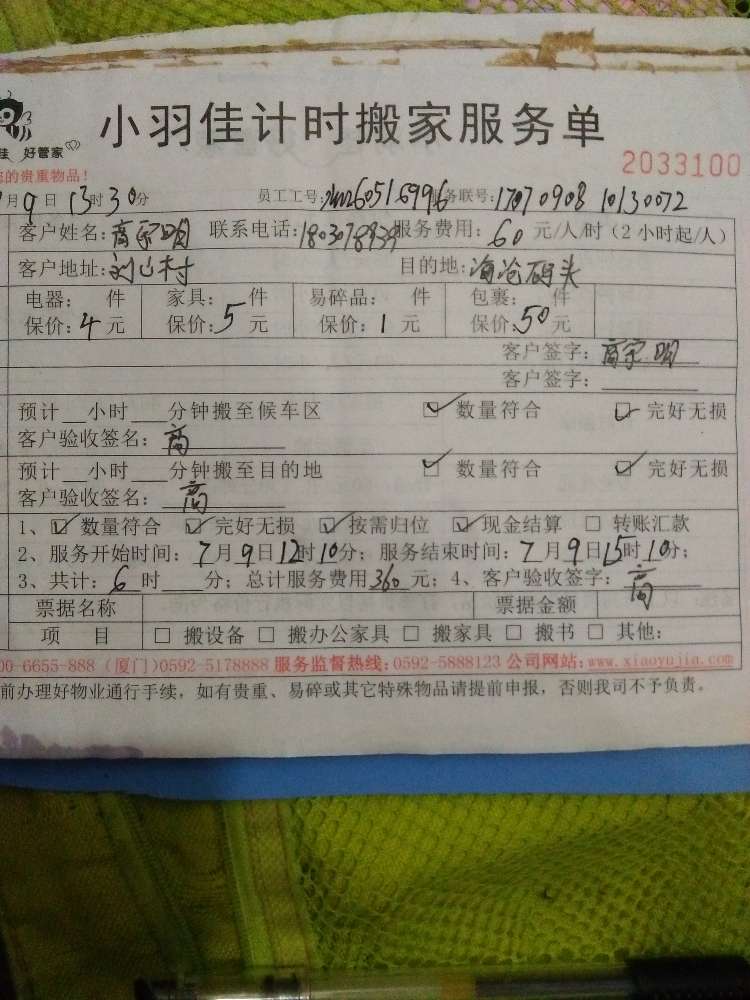 小羽佳计时搬家服务单
佳 好管家
2033100
您的贵重物品！
月9日13时30分 员工工号： 服务联号：17070908 10130072
客户姓名：商宗明 联系电话： 服务费用：60元/人/时（2小时起/人）
客户地址：刘山村 目的地：海沧码头
电器： 件 家具： 件 易碎品： 件 包裹： 件
保价：4元 保价：5元 保价：1元 保价：50元
客户签字：商宗明
客户签字：
预计__小时___分钟搬至候车区 ☑ 数量符合 ☑ 完好无损
客户验收签名：商
预计__小时___分钟搬至目的地 ☑ 数量符合 ☑ 完好无损
客户验收签名：商
1、☑ 数量符合 ☑ 完好无损 ☑ 按需归位 ☑ 现金结算 □ 转账汇款
2、服务开始时间：7月9日12时10分；服务结束时间：7月9日15时10分；
3、共计：6时___分；总计服务费用360元；4、客户验收签字：商
票据名称 票据金额
项 目 □ 搬设备 □ 搬办公家具 □ 搬家具 □ 搬书 □ 其他：
00-6655-888（厦门）0592-5178888 服务监督热线：0592-5888123 公司网站：www.xiaoyujia.com
前办理好物业通行手续，如有贵重、易碎或其它特殊物品请提前申报，否则我司不予负责。